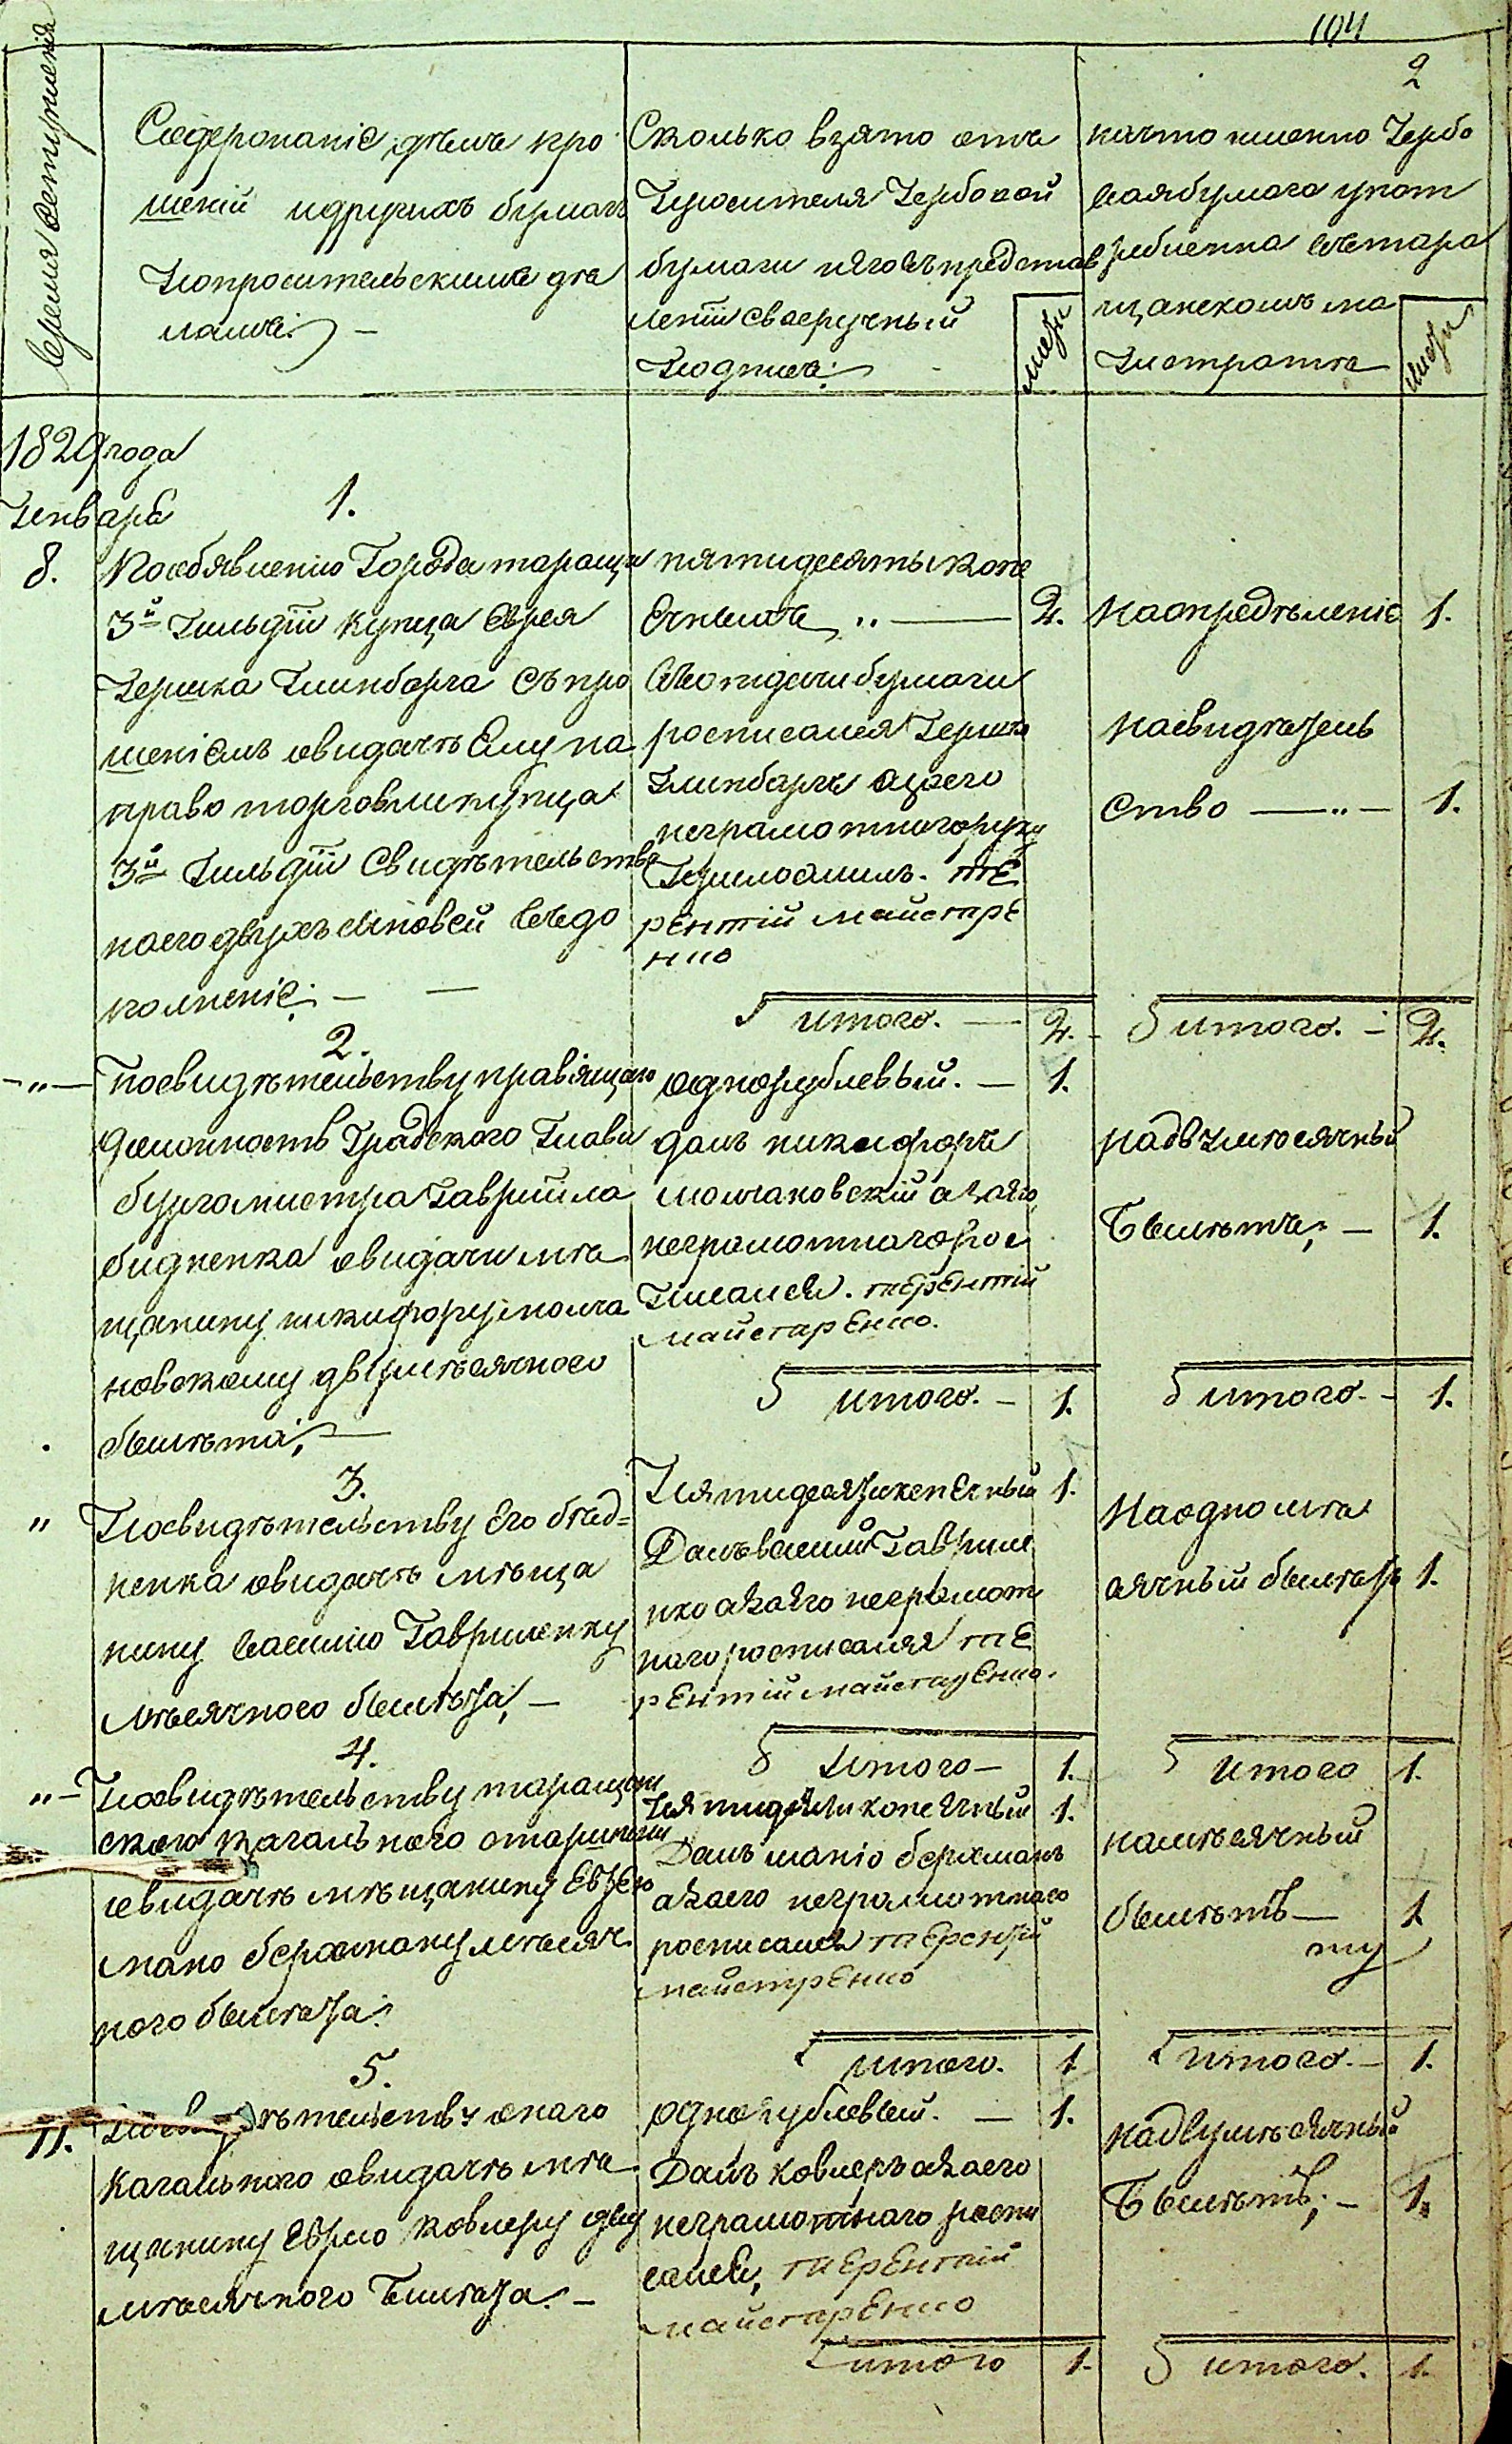 104
2
Время вступленія
Содержаніе дѣлъ про
шеній идругихъ бумагъ
попросительскимъ дѣ
ламъ:
Сколько взято отъ
просителя гербовой
бумаги иего въ представ
леніи своеручный
подписъ:
листы
начто именно гербо
вая бумага упот
реблена въ тара
щанскомъ ма
гистратѣ
листы
1829 года
генваря
8.
1.
Пообявленію Города таращи
3й гильдіи купца Еврея
Гершка Глинберга съ про
шеніемъ овидачѣ Ему на
право торговли купца
3й гильдіи Свидѣтельства
наего двухъ синовей въ до
полненіе:
пятидесяты копе
ечнымъ 2.
Въотдачи бумаги
росписался Гершъ
Глинбаргъ азаего
неграмотнаго руку
Приложилъ. тЕ
рЕнтій майстрЕ
нко
наопредѣленіе 1.
насвидѣтель
ство 1.
итого. 2.
итого. 2.
2.
Посвидѣтельству правящаго
должность Градского Глави
бургомистра Гавриила
бидненка овидачи мѣ
щанину никифору молча
новскому двумѣсячного
билѣта;
однорублевый. 1.
далъ никифоръ
молчановскій азаего
неграмотнаго рос
писался. тЕрЕнтій
майстарЕнко.
надвумѣсячный
Билѣтъ; 1.
итого. 1.
итого. 1.
3.
Посвидѣтельству Его бѣд=
ненка овидачѣ мѣща
нину василію Гавриленку
мѣсячного билѣта;
Пятидесятикопѣечный 1.
Далъ василий Гаврилен
ко азаего неграмот
наго росписался тЕ
рЕнтій майстарЕнко.
Наодномѣ
сячный билѣтъ 1.
Итого 1.
итого 1.
4.
Посвидѣтельству таращан
ского кагального старшини
овидачѣ мѣщанину Еврею
мано бероману мѣсяч
ного билѣта:
Пятидесятикопечный 1.
Далъ маніо берхманъ
азаего неграмотнаго
росписался тЕрентій
майстрЕнко
намѣсячный
билѣтъ 1.
итого. 1
итого. 1.
5.
11.
Посвидѣтельству онаго
кагального овидачѣ мѣ
щанину Еврю ковлеру дву
мѣсячного билѣта.
однорублевый. 1.
Далъ ковлеръ азаего
неграмотнаго роспи
сался, тЕрЕнтій
майстарЕнко
надвумѣсячный
Билѣтъ; 1.
итого 1.
итого. 1.